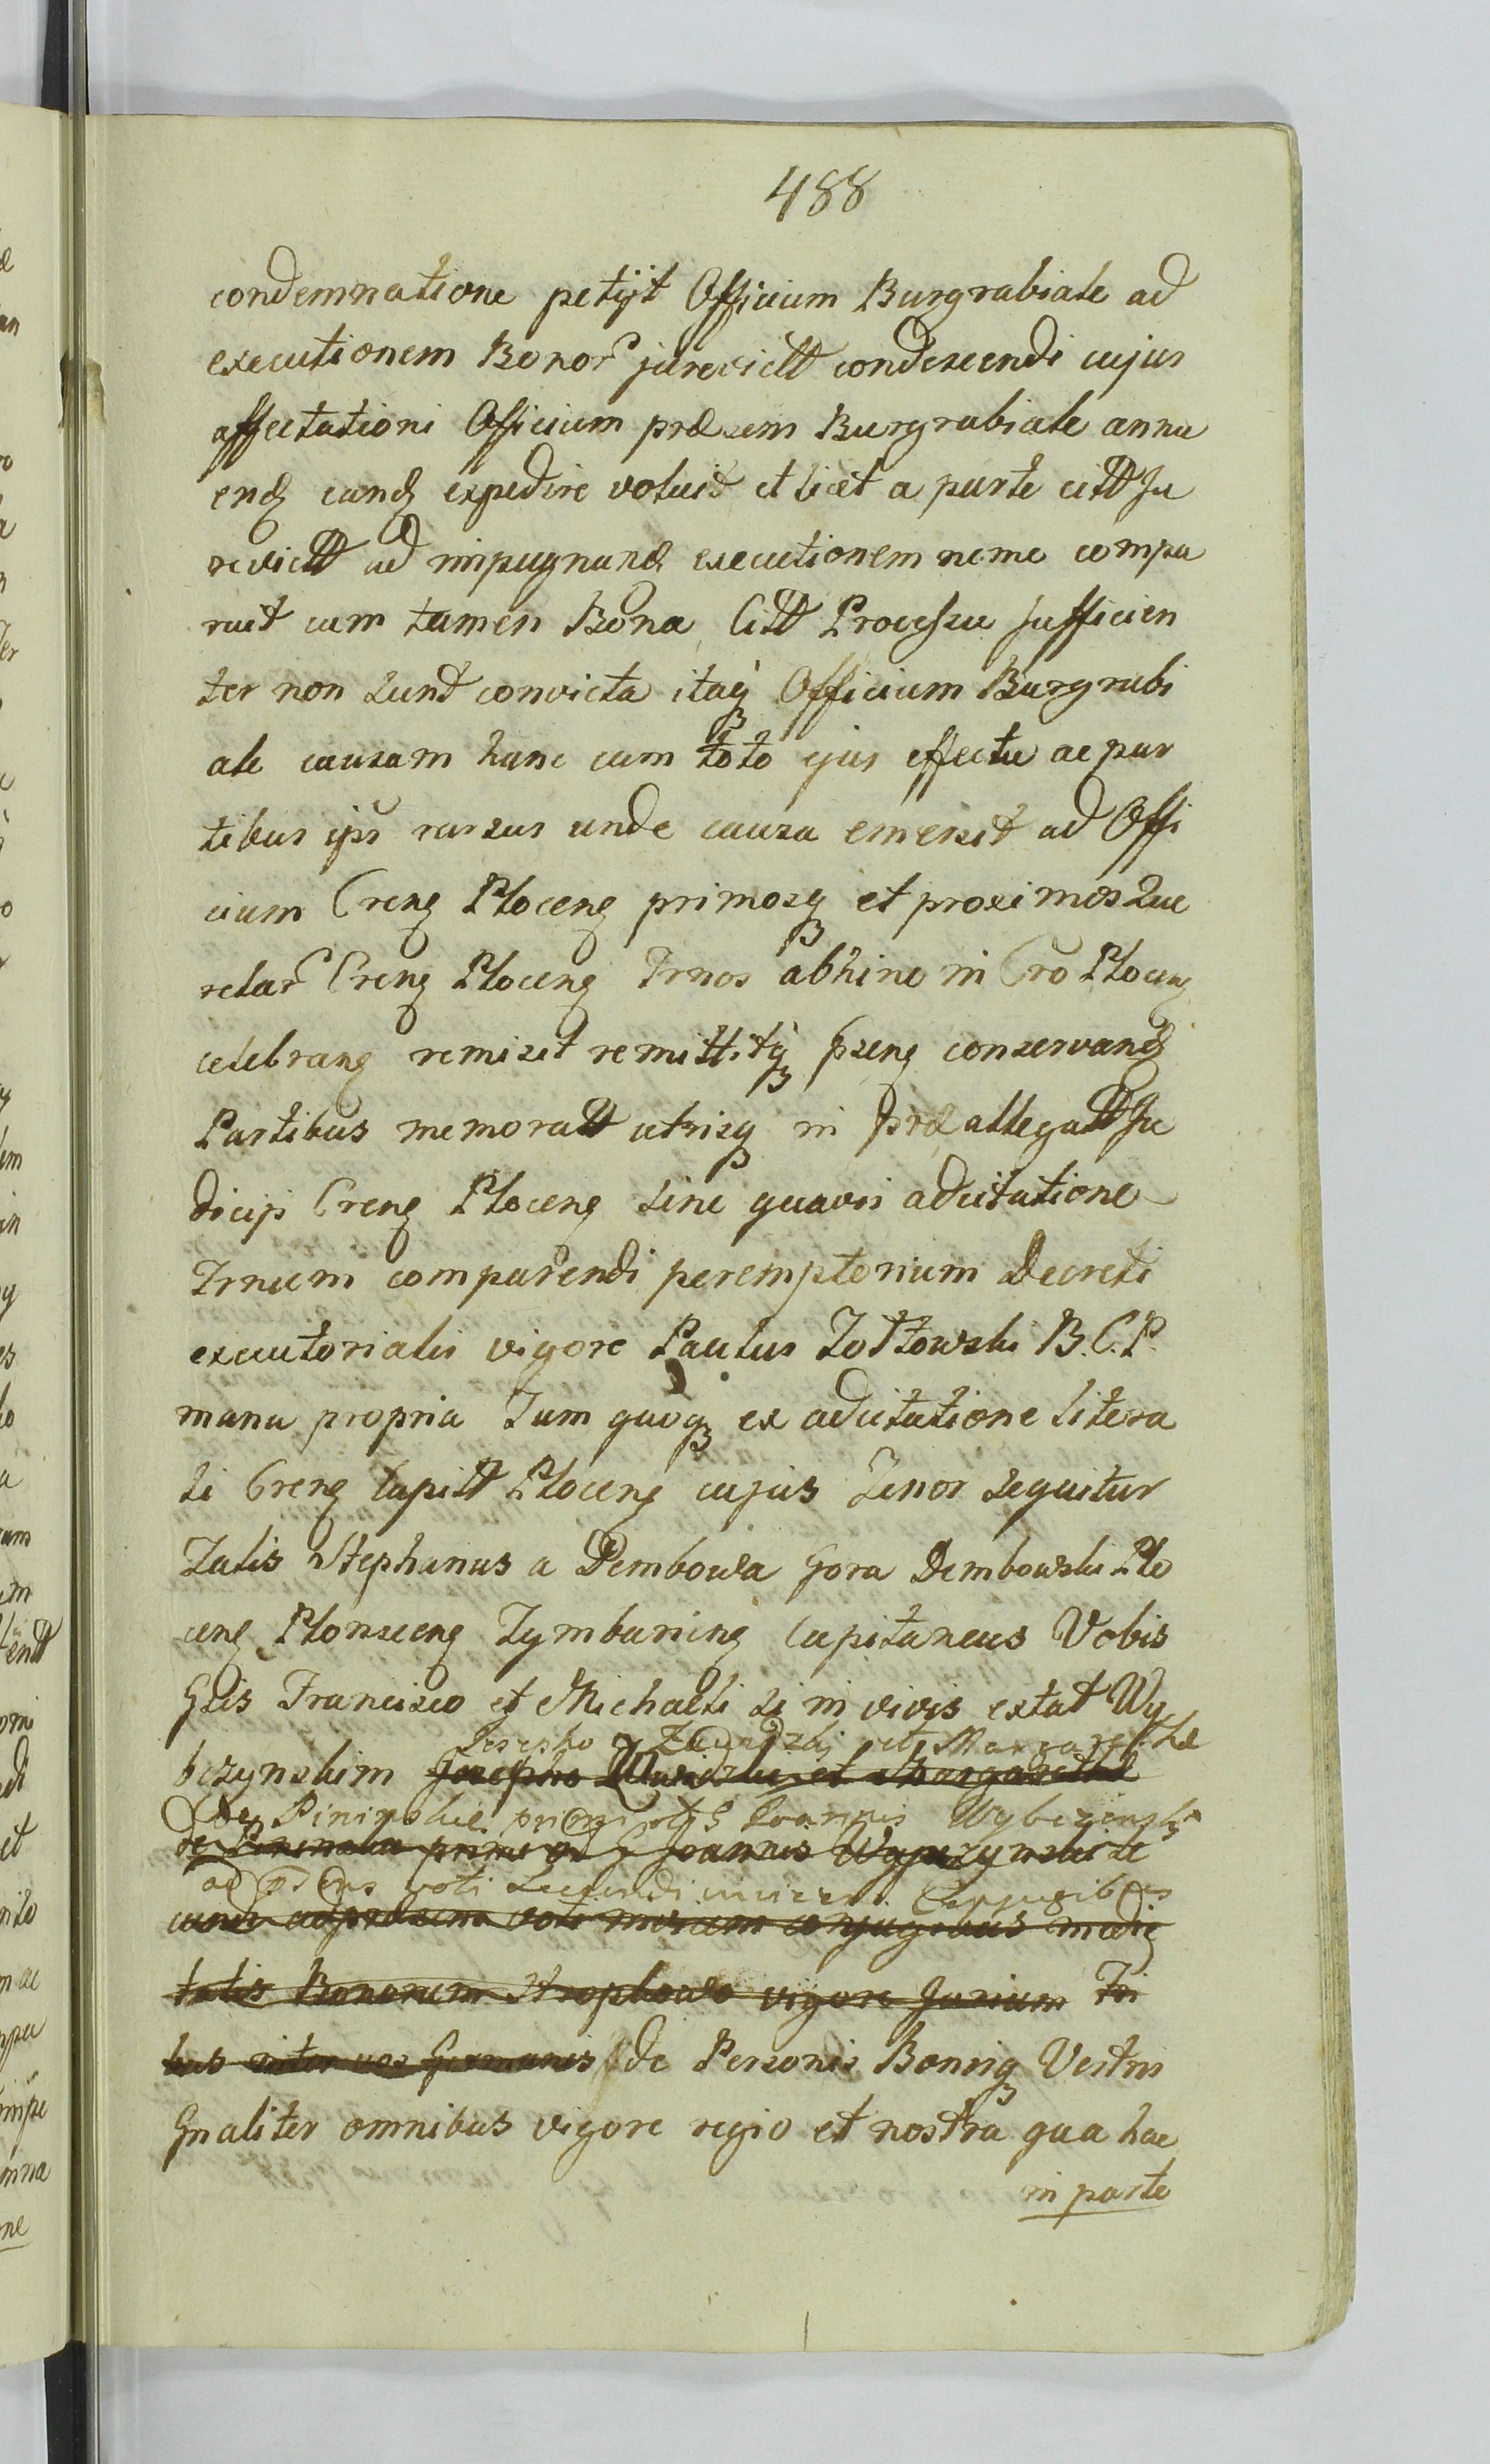 488
condemnatione petijt Officium Burgrabiale ad
executionem Bonor jurevictt condescendi cujus
affectationi Officium præsens Burgrabiale annu
end eand expedire voluit et licet a parte citt Ju
revictt ad impugnand executionem nemo compa
ruit cum tamen Bona Citt Processu sufficien
ter non sunt convicta itaq Officium Burgrabi
ale causam hanc cum toto ejus effectu ac par
tibus ips rursus unde causa emersit ad Offi
cium Creng Ploceng primosq et proximos Que
relar Creng Ploceng Trnos abhinc in Cro Ploceng
celebrang remisit remittitq pseng conservand
Partibus memoratt utrisq in præallegatt Ju
dicijs Creng Ploceng sine quavis adcitatione
Trnum comparendi peremptorium Decreti
executorialis vigore Paulus Żołtowski B.C.P.
manu propria Tum quoq ex adcitatione litera
li Creng Capitt Ploceng cujus Tenor sequitur
Talis Stephanus a Dembowa Gora Dembowski Plo
ceng Plonsceng Tymbarieng Capitaneus Vobis
Gsis Francisco et Michaeli si in vivis extat Wy
Josepho Zawidzki et Margarethæ
bczynskim Josepho Zawidzki et Margarethæ
de Pininskie primi Joannis Wybczynski
de Pininskie primi G Joannis Wybczynski se
ad voti Secundi Conjugibus
cundi ad præsens voti conjugibus medie
tatis Bonorum vigore Jurium Tri
bus inter vos Germanis de Personis Bonisq Vestris
Gnaliter omnibus vigore regio et nostra qua hac
in parte